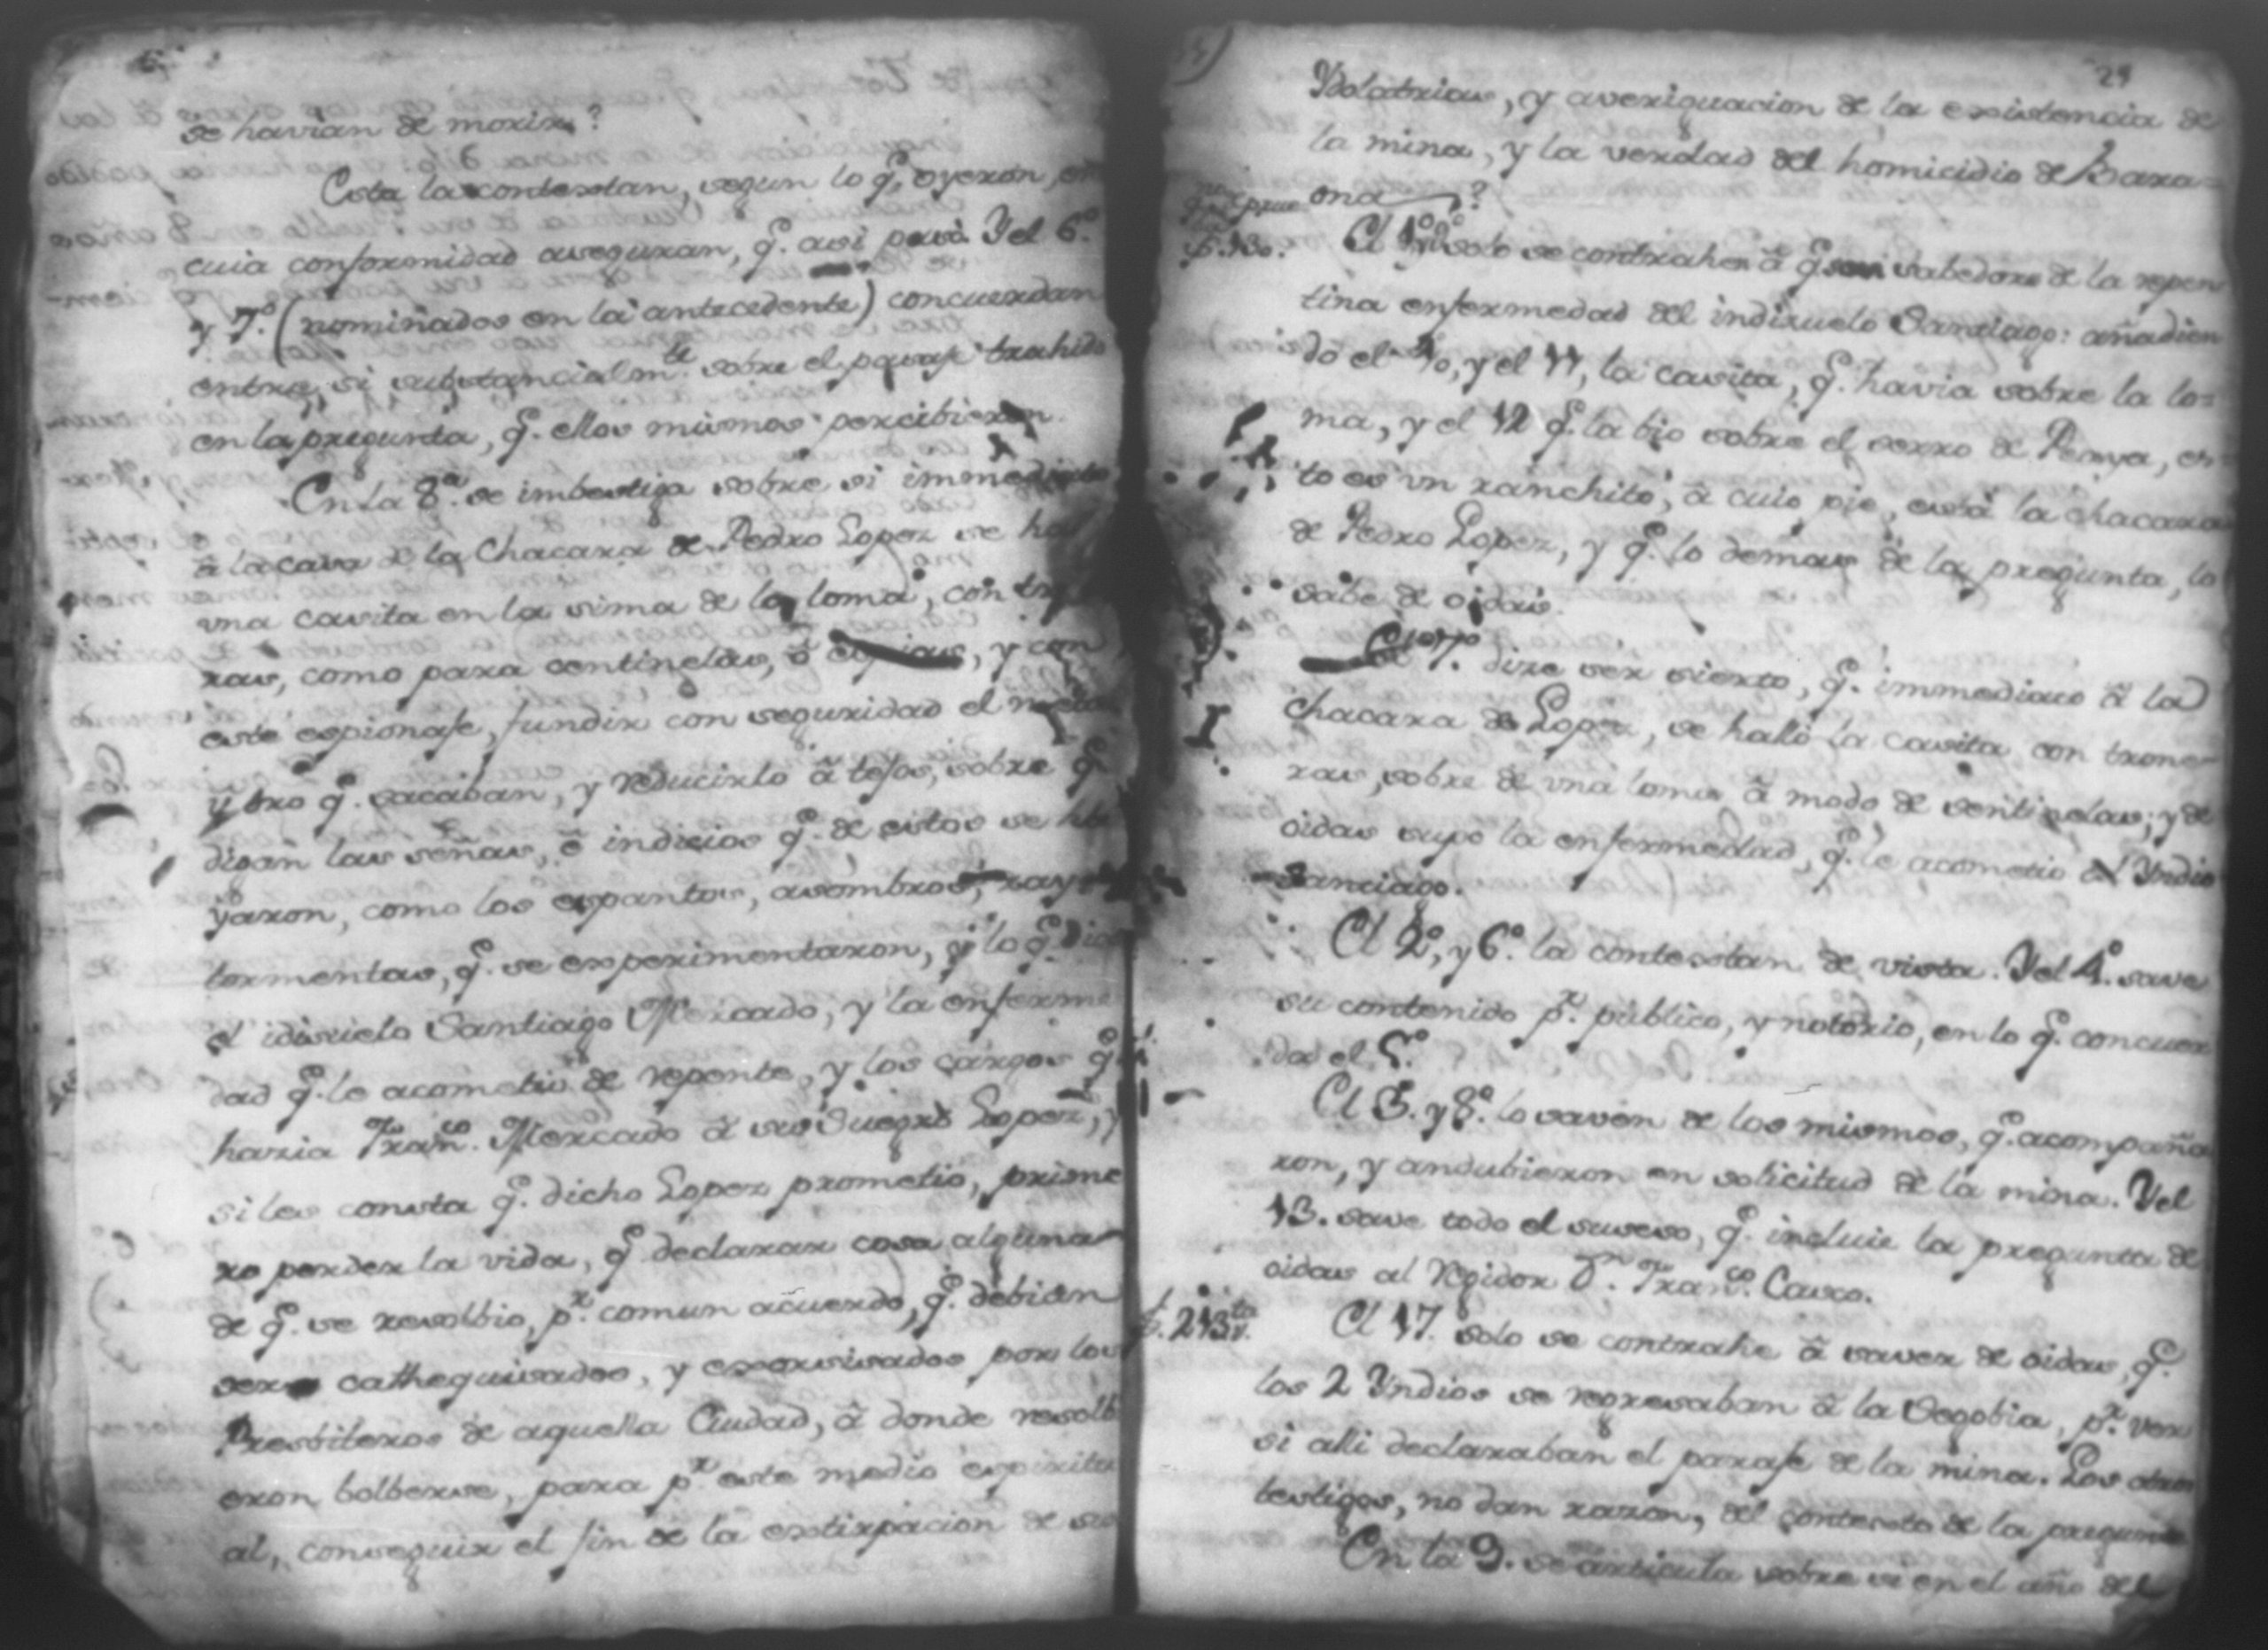 se havian de morir?
Esta la contestan, segun lo q.e oyeron, en
cuia conformidad aseguran, q.e asi pasó. Y el 6.o
y 7.o (nominados en la antecedente) concuerdan
entre si substancialm.te sobre el pasaje trahido
en la pregunta, q.e ellos mismos percibieron.
En la 8.a se imbestiga sobre si immediato
â la casa de la Chacara de Pedro Lopez se
una casita en la sima de la loma, con
ras, como para centinelas, ô espias, y con
este espionaje, fundir con seguridad el
y oro q.e sacaban, y reducirlo â tejos, sobre q.e
digan las señas, ê indicios q.e de estos se
yaron, como los espantos, asombros, rayos
tormentas, q.e se experimentaron, y lo q.e
el idisuelo Santiago Mercado, y la enferme
dad q.e le acometió de repente, y los cargos q.e
haria Fran.co Mercado â su Suegro Lopez, y
si les consta q.e dicho Lopez prometio, prime
ro perder la vida, q.e declarar cosa alguna
de q.e se resolbio, p.r comun acuerdo, q.e debian
ser cathequisados, y exorsisados por los
Presbiteros de aquella Ciudad, â donde resolb
eron bolberse, para p.r este medio espiritu
al, conseguir el fin de la extirpacion de sus
29
Ydolatrias, y averiguacion de la existencia de
la mina, y la verdad del homicidio de Bara=
ona?
El solo se contrahen â q.e son sabedores de la repen
tina enfermedad del indisuelo Santiago: añadien
do el 10, y el 11, la casita, q.e havia sobre la lo=
ma, y el 12 q.e la bio sobre el serro de Penya, es=
to es un ranchito, â cuio pie, está la chacara
de Pedro Lopez, y q.e lo demas de la pregunta, lo
sabe de oidas.
El 7.o dixe ser sierto, q.e immediato â la
chacara de Lopez, se halló la casita con trone-
ras, sobre de una loma â modo de sentinelas; y de
oidas supo la enfermedad, q.e le acometio al Yndio
Santiago.
El 2.o, y 6.o la contestan de vista. Y el 4.o save
su contenido p.r publico, y notorio, en lo q.e concuer
da el 5.o
El 3. y 8.o lo saven de los mismos, q.e acompaña
ron, y andubieron en solicitud de la mina. Y el
13. save todo el suseso, q.e incluie la pregunta de
oidas al Regidor D.n Fran.co Casco.
f. 213 El 17. solo se contrahe â saver de oidas, q.e
los 2 Yndios se regresaban â la Segobia, p.r ver
si alli declaraban el paraje de la mina. Los otros
testigos, no dan razon, del contexto de la pregunta
En la 9. se articula sobre si en el año del